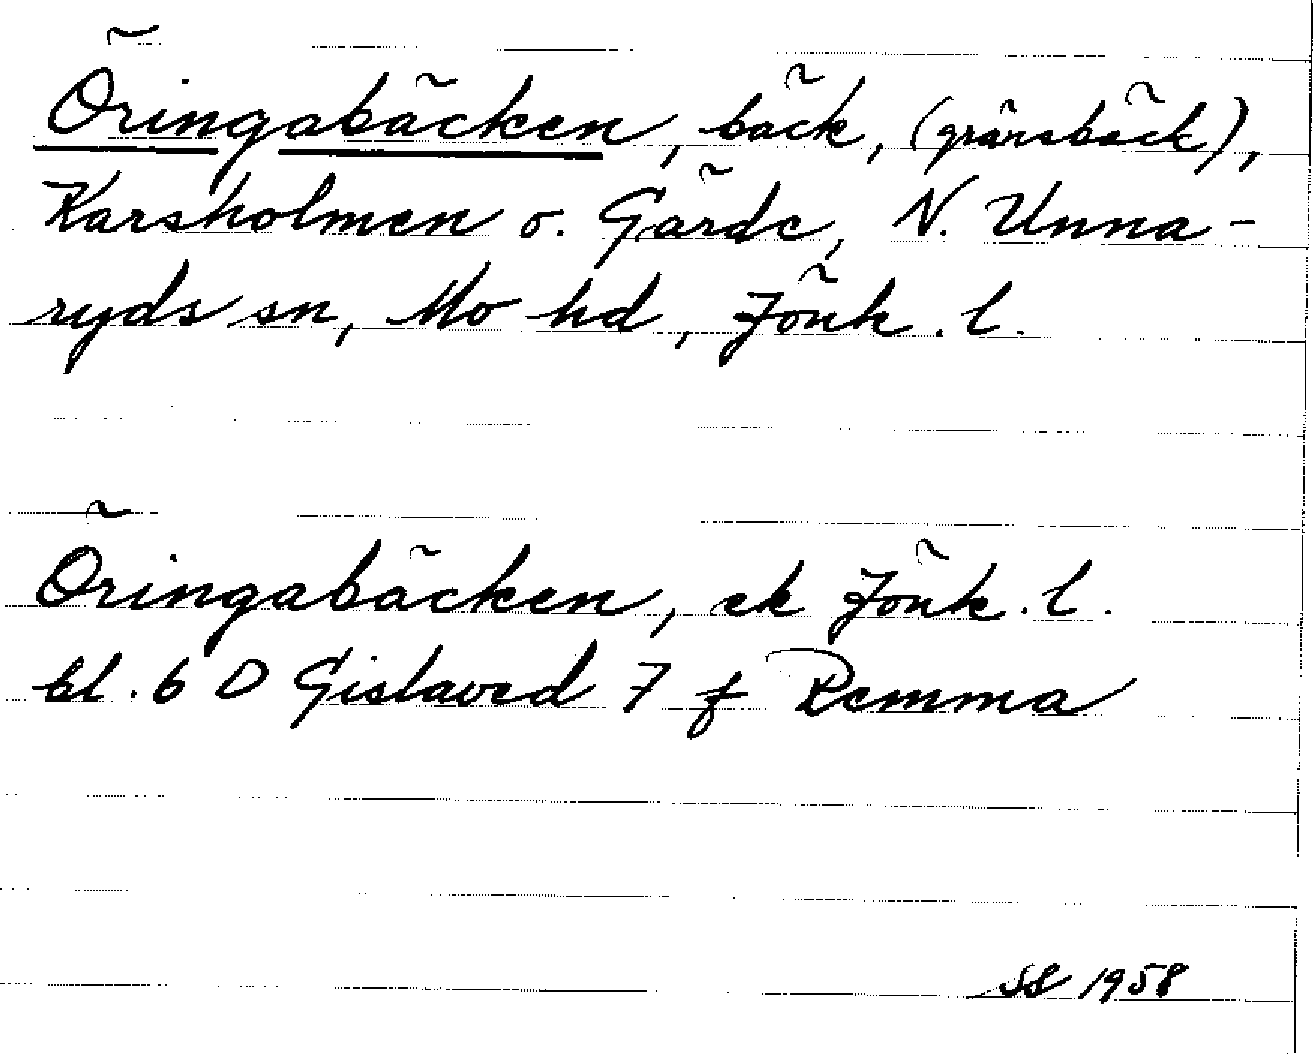 Öringabäcken, bäck, (gränsbäck),
Karsholmen o. Gärde, N. Unna-
ryds sn, Mo hd, Jönk. l.
Öringabäcken, ek Jönk. l.
bl. 6 D Gislaved 7 f Remma
SS 1958